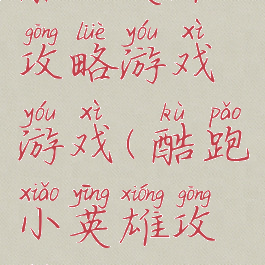 gōng lüè yóu xì
攻略游戏
yóu xì kù pǎo
游戏(酷跑
xiǎo yīng xióng gōng
小英雄攻